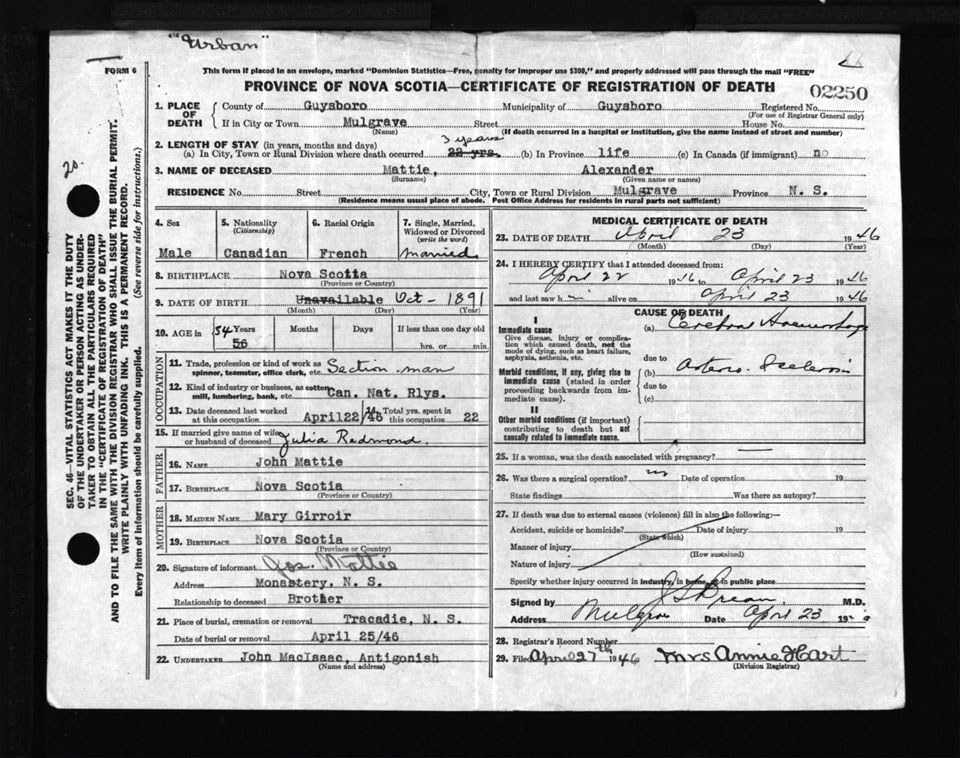 "Urban"
FORM 6
This form if placed in an envelope, marked "Dominion Statistics—Free, penalty for improper use $300," and properly addressed will pass through the mail "FREE"
PROVINCE OF NOVA SCOTIA—CERTIFICATE OF REGISTRATION OF DEATH
02250
1. PLACE OF DEATH County of Guysboro Municipality of Guysboro Registered No.
(For use of Registrar General only)
If in City or Town Mulgrave Street House No.
(Name) (If death occurred in a hospital or institution, give the name instead of street and number)
2. LENGTH OF STAY (in years, months and days) 3 years
(a) In City, Town or Rural Division where death occurred 22 yrs. (b) In Province life (c) In Canada (if immigrant) no
3. NAME OF DECEASED Mattie, Alexander
(Surname) (Given name or names)
RESIDENCE No. Street City, Town or Rural Division Mulgrave Province N. S.
(Residence means usual place of abode. Post Office Address for residents in rural parts not sufficient)
20.
SEC. 46—VITAL STATISTICS ACT MAKES IT THE DUTY
OF THE UNDERTAKER OR PERSON ACTING AS UNDER-
TAKER TO OBTAIN ALL THE PARTICULARS REQUIRED
IN THE "CERTIFICATE OF REGISTRATION OF DEATH"
AND TO FILE THE SAME WITH THE DIVISION REGISTRAR WHO SHALL ISSUE THE BURIAL PERMIT.
WRITE PLAINLY WITH UNFADING INK. THIS IS A PERMANENT RECORD.
Every item of information should be carefully supplied. (See reverse side for instructions.)
4. Sex 5. Nationality (Citizenship) 6. Racial Origin 7. Single, Married, Widowed or Divorced (write the word)
Male Canadian French Married
8. BIRTHPLACE Nova Scotia
(Province or Country)
9. DATE OF BIRTH Unavailable Oct - 1891
(Month) (Day) (Year)
10. AGE in 54 Years Months Days If less than one day old
56 hrs. or min.
OCCUPATION
11. Trade, profession or kind of work as spinner, teamster, office clerk, etc. Section-man
12. Kind of industry or business, as cotton mill, lumbering, bank, etc. Can. Nat. Rlys.
13. Date deceased last worked at this occupation April22/46 14. Total yrs. spent in this occupation 22
15. If married give name of wife or husband of deceased Julia Redmond.
FATHER
16. NAME John Mattie
17. BIRTHPLACE Nova Scotia
(Province or Country)
MOTHER
18. MAIDEN NAME Mary Girroir
19. BIRTHPLACE Nova Scotia
(Province or Country)
20. Signature of informant Jos. Mattie
Address Monastery, N. S.
Relationship to deceased Brother
21. Place of burial, cremation or removal Tracadie, N. S.
Date of burial or removal April 25/46
22. UNDERTAKER John MacIsaac, Antigonish
(Name and address)
MEDICAL CERTIFICATE OF DEATH
23. DATE OF DEATH April 23 1946
(Month) (Day) (Year)
24. I HEREBY CERTIFY that I attended deceased from:
April 22 1946 to April 23 1946
and last saw him alive on April 23 1946
CAUSE OF DEATH
I
Immediate cause (a) Cerebral Haemorrhage
Give disease, injury or complication which caused death, not the mode of dying, such as heart failure, asphyxia, asthenia, etc.
due to
Morbid conditions, if any, giving rise to immediate cause (stated in order proceeding backwards from immediate cause). (b) Arterio-Sclerosis
due to
(c)
II
Other morbid conditions (if important) contributing to death but not causally related to immediate cause.
25. If a woman, was the death associated with pregnancy?
26. Was there a surgical operation? no Date of operation 19
State findings Was there an autopsy?
27. If death was due to external causes (violence) fill in also the following:—
Accident, suicide or homicide? Date of injury 19
(State which)
Manner of injury
(How sustained)
Nature of injury
Specify whether injury occurred in industry, in home, or in public place
Signed by M.D.
Address Mulgrave Date April 23 19
28. Registrar's Record Number
29. Filed April 27th 1946 Mrs Annie Hart
(Division Registrar)